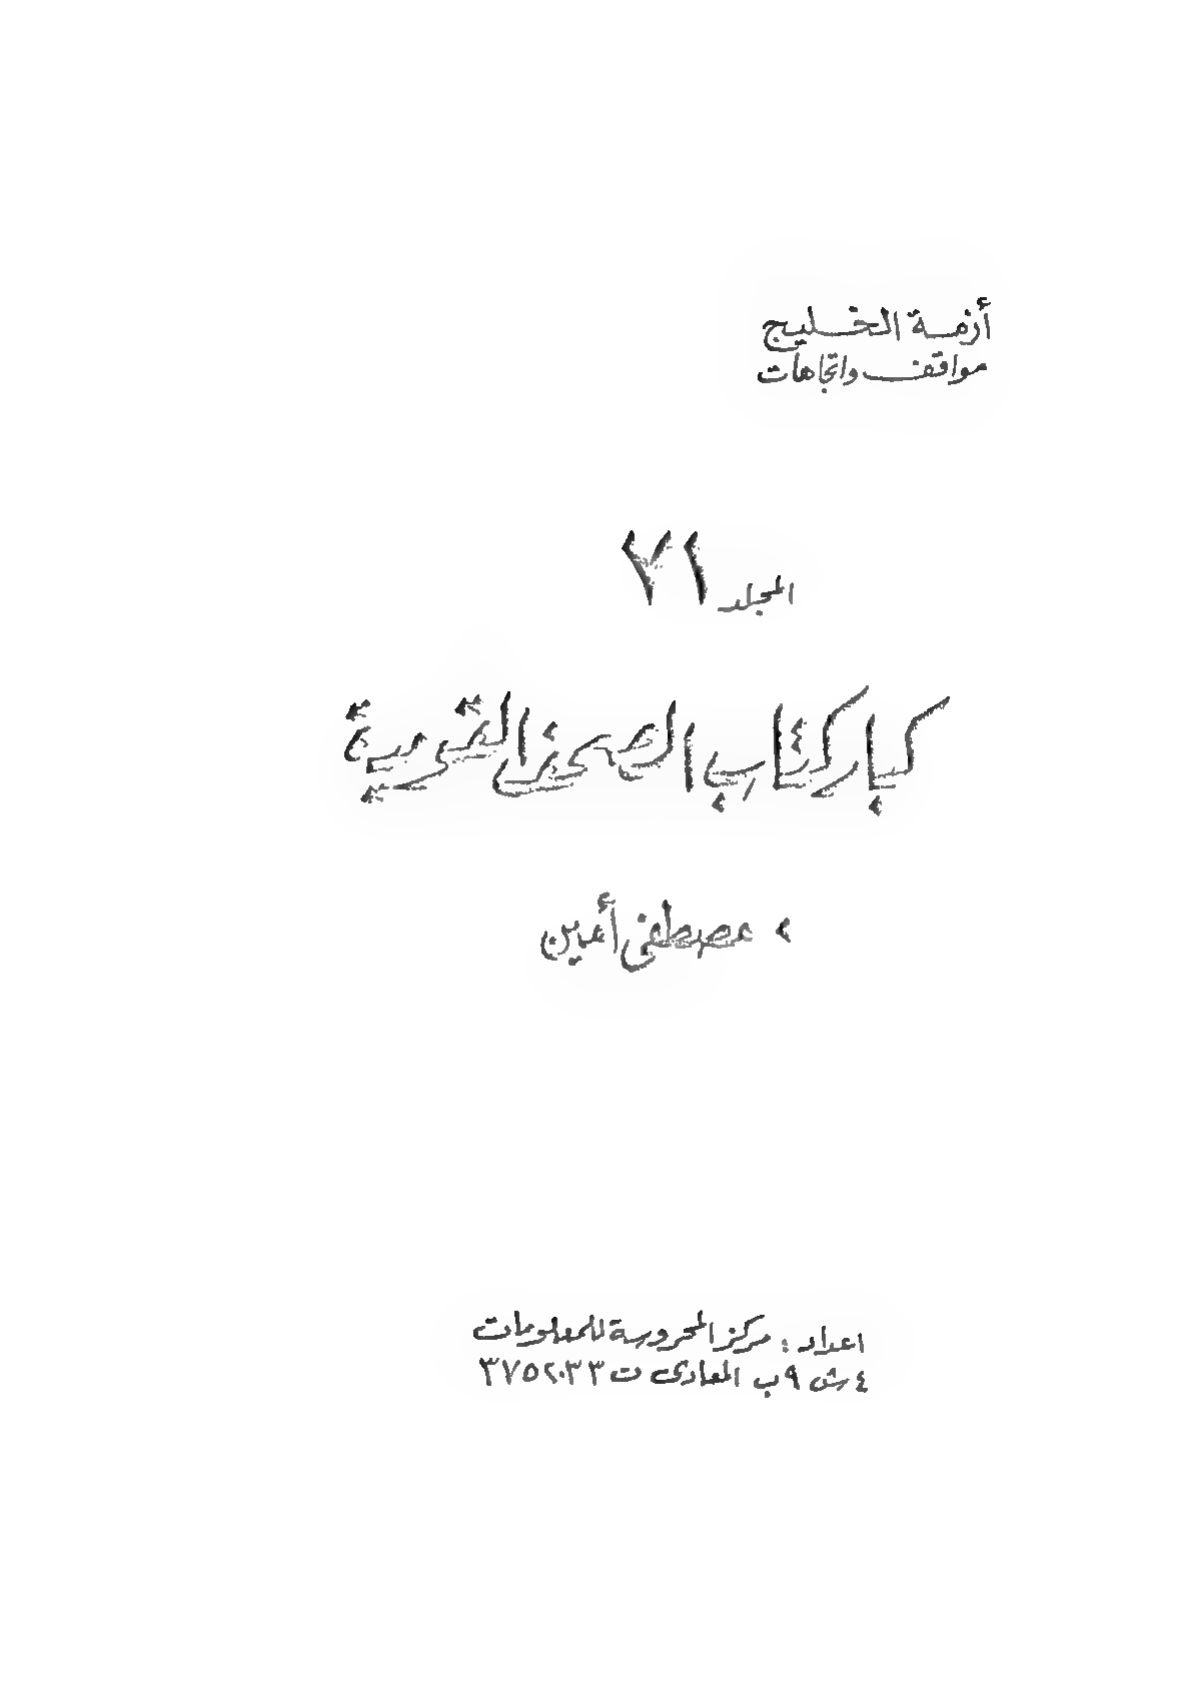 أزمة الخليج
مواقف واتجاهات
المجلد ٧١
كبار كتاب الصحف القومية
• مصطفى أمين
اعداد : مركز المحروسة للمعلومات
٤ ش ٩ب المعادى ت ٣٧٥٢٠٣٣